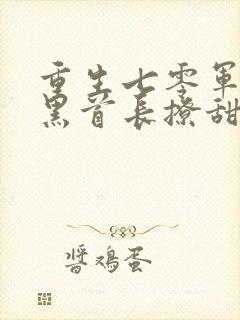 重生七零军
黑首长撩甜
酱鸡蛋